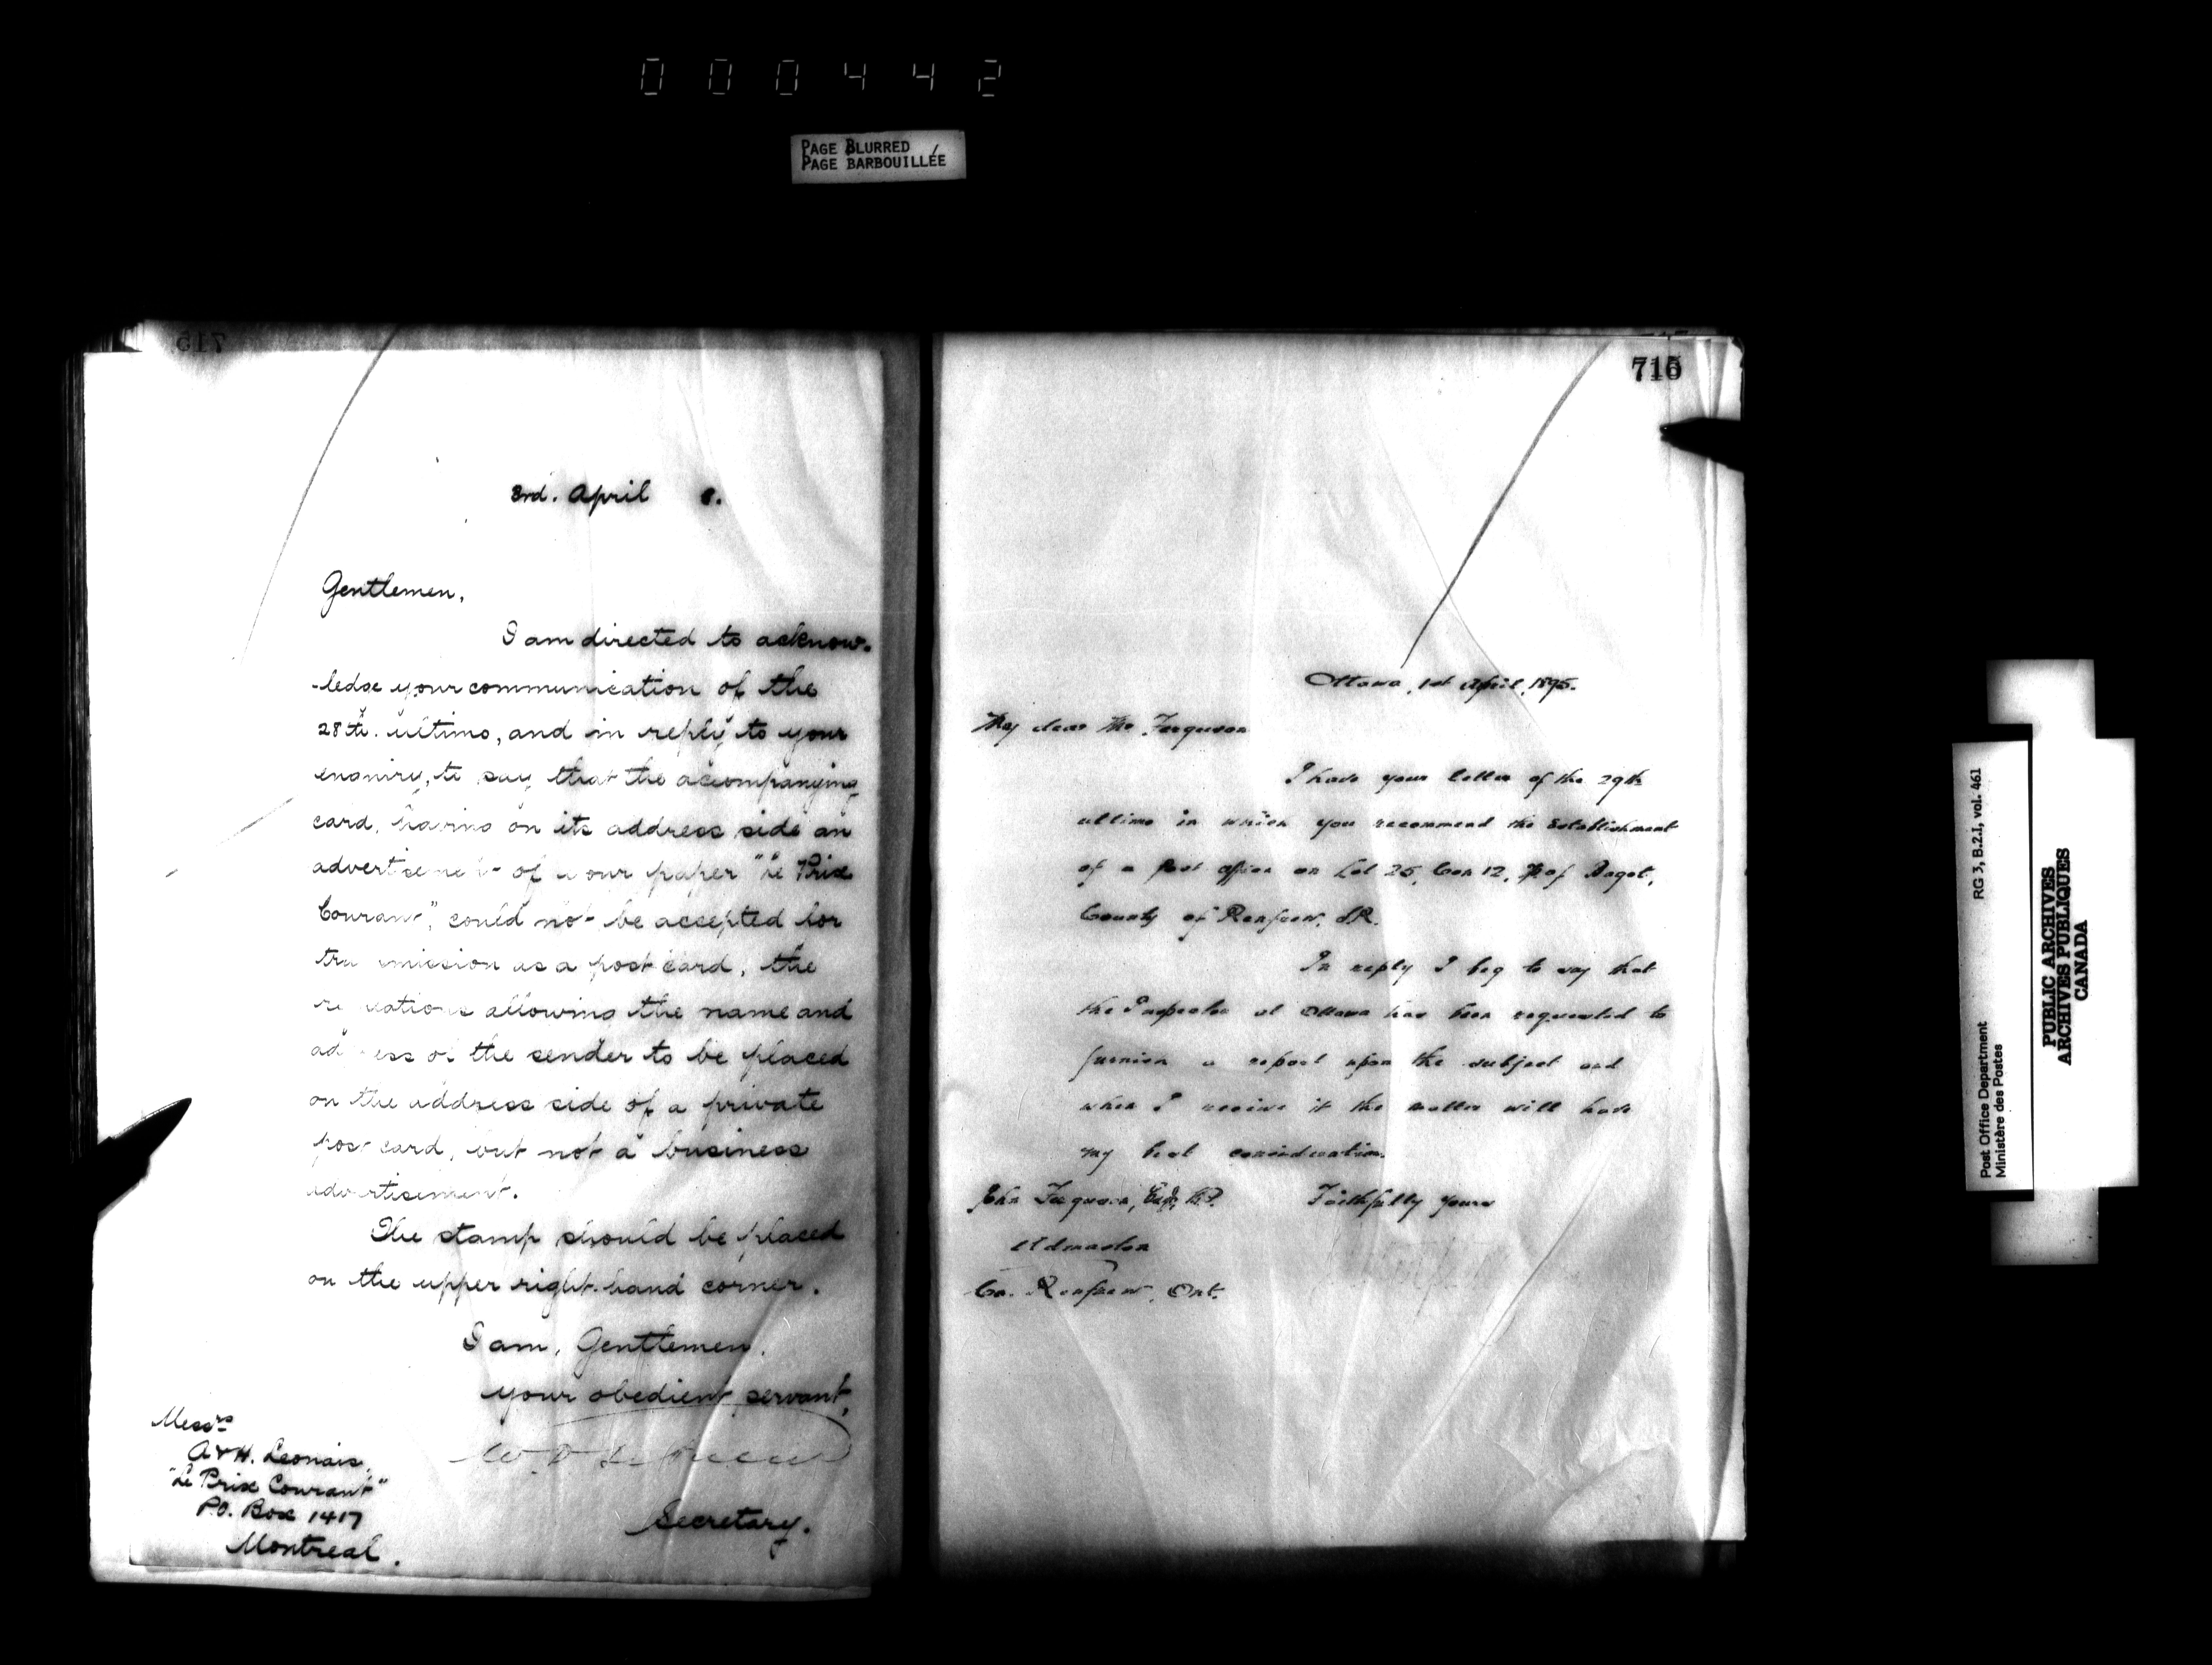 000442
PAGE BLURRED
PAGE BARBOUILLÉE
715
3rd. April
Gentlemen,
I am directed to acknow-
-ledge your communication of the
28th. ultimo, and in reply to your
enquiry, to say that the accompanying
card, having on its address side an
advertisement of your paper "Le Prix
Courant", could not be accepted for
transmission as a post card, the
regulations allowing the name and
address of the sender to be placed
on the address side of a private
post card, but not a business
advertisement.
The stamp should be placed
on the upper right-hand corner.
I am, Gentlemen,
your obedient servant,
Secretary.
Messrs
A & H. Leonais,
"Le Prix Courant"
P.O. Box 1417
Montreal.
Ottawa, 1st April, 1895.
My dear Mr. Ferguson
I have your letter of the 29th
ultimo in which you recommend the establishment
of a Post Office on Lot 25, Con 12, Tp of Bagot,
County of Renfrew, S.R.
In reply I beg to say that
the Inspector at Ottawa has been requested to
furnish a report upon the subject and
when I receive it the matter will have
my best consideration.
Faithfully yours
John Ferguson, Esq, M.P.
Admaston
Co. Renfrew, Ont.
Post Office Department
Ministère des Postes
RG 3, B.2.I, vol. 461
PUBLIC ARCHIVES
ARCHIVES PUBLIQUES
CANADA